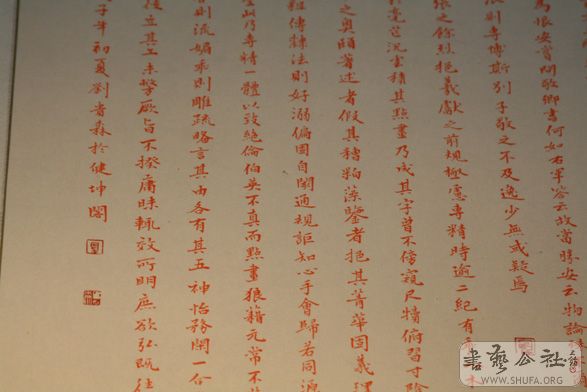 馬恨安嘗問敬卿書何如右軍答云故當勝安云物論
浪則專博斯別子敬之不及逸少無或疑焉
張之餘烈挹羲獻之前規極慮專精時逾二紀有
於毫芒況云積其點畫乃成其字曾不傍窺尺牘俯習寸陰
之奧賾著述者假其糟粕藻鑒者挹其菁華固義理
祖傳隸法則好溺偏固自閡通規詎知心手會歸若同源
此乃專精一體以致絕倫伯英不真而點畫狼籍元常不
則流媚乖則雕疏略言其由各有其五神怡務閑一合
後立其工未彰厥旨不揆庸昧輒效所明庶欲弘既往
子年初夏劉青森於健坤閣
書藝公社
WWW.SHUFA.ORG